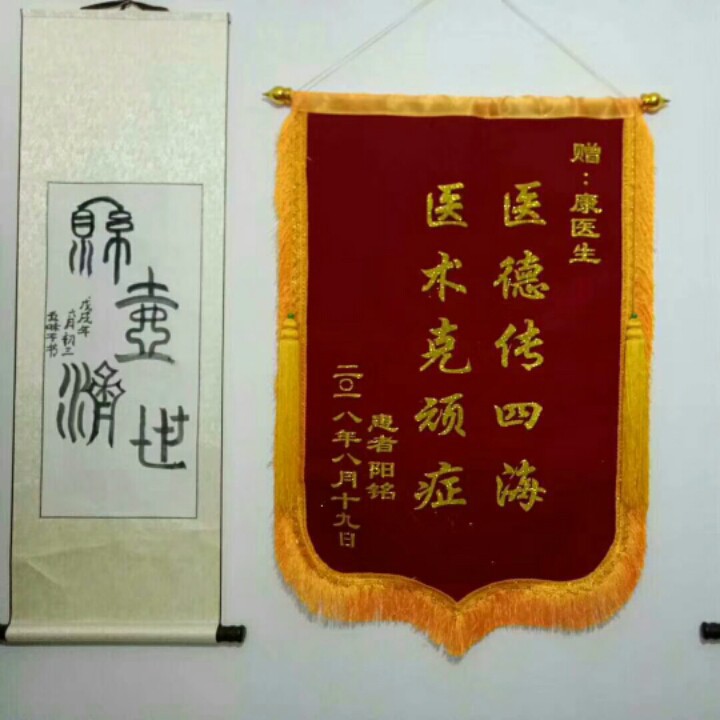 縣壺濟世
戊戌年
六月初三
赠：康医生
医德传四海
医术克顽症
患者阳铭
二〇一八年八月十九日